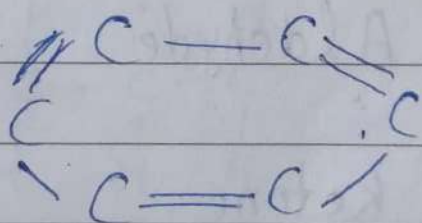 C — C
C C
C = C